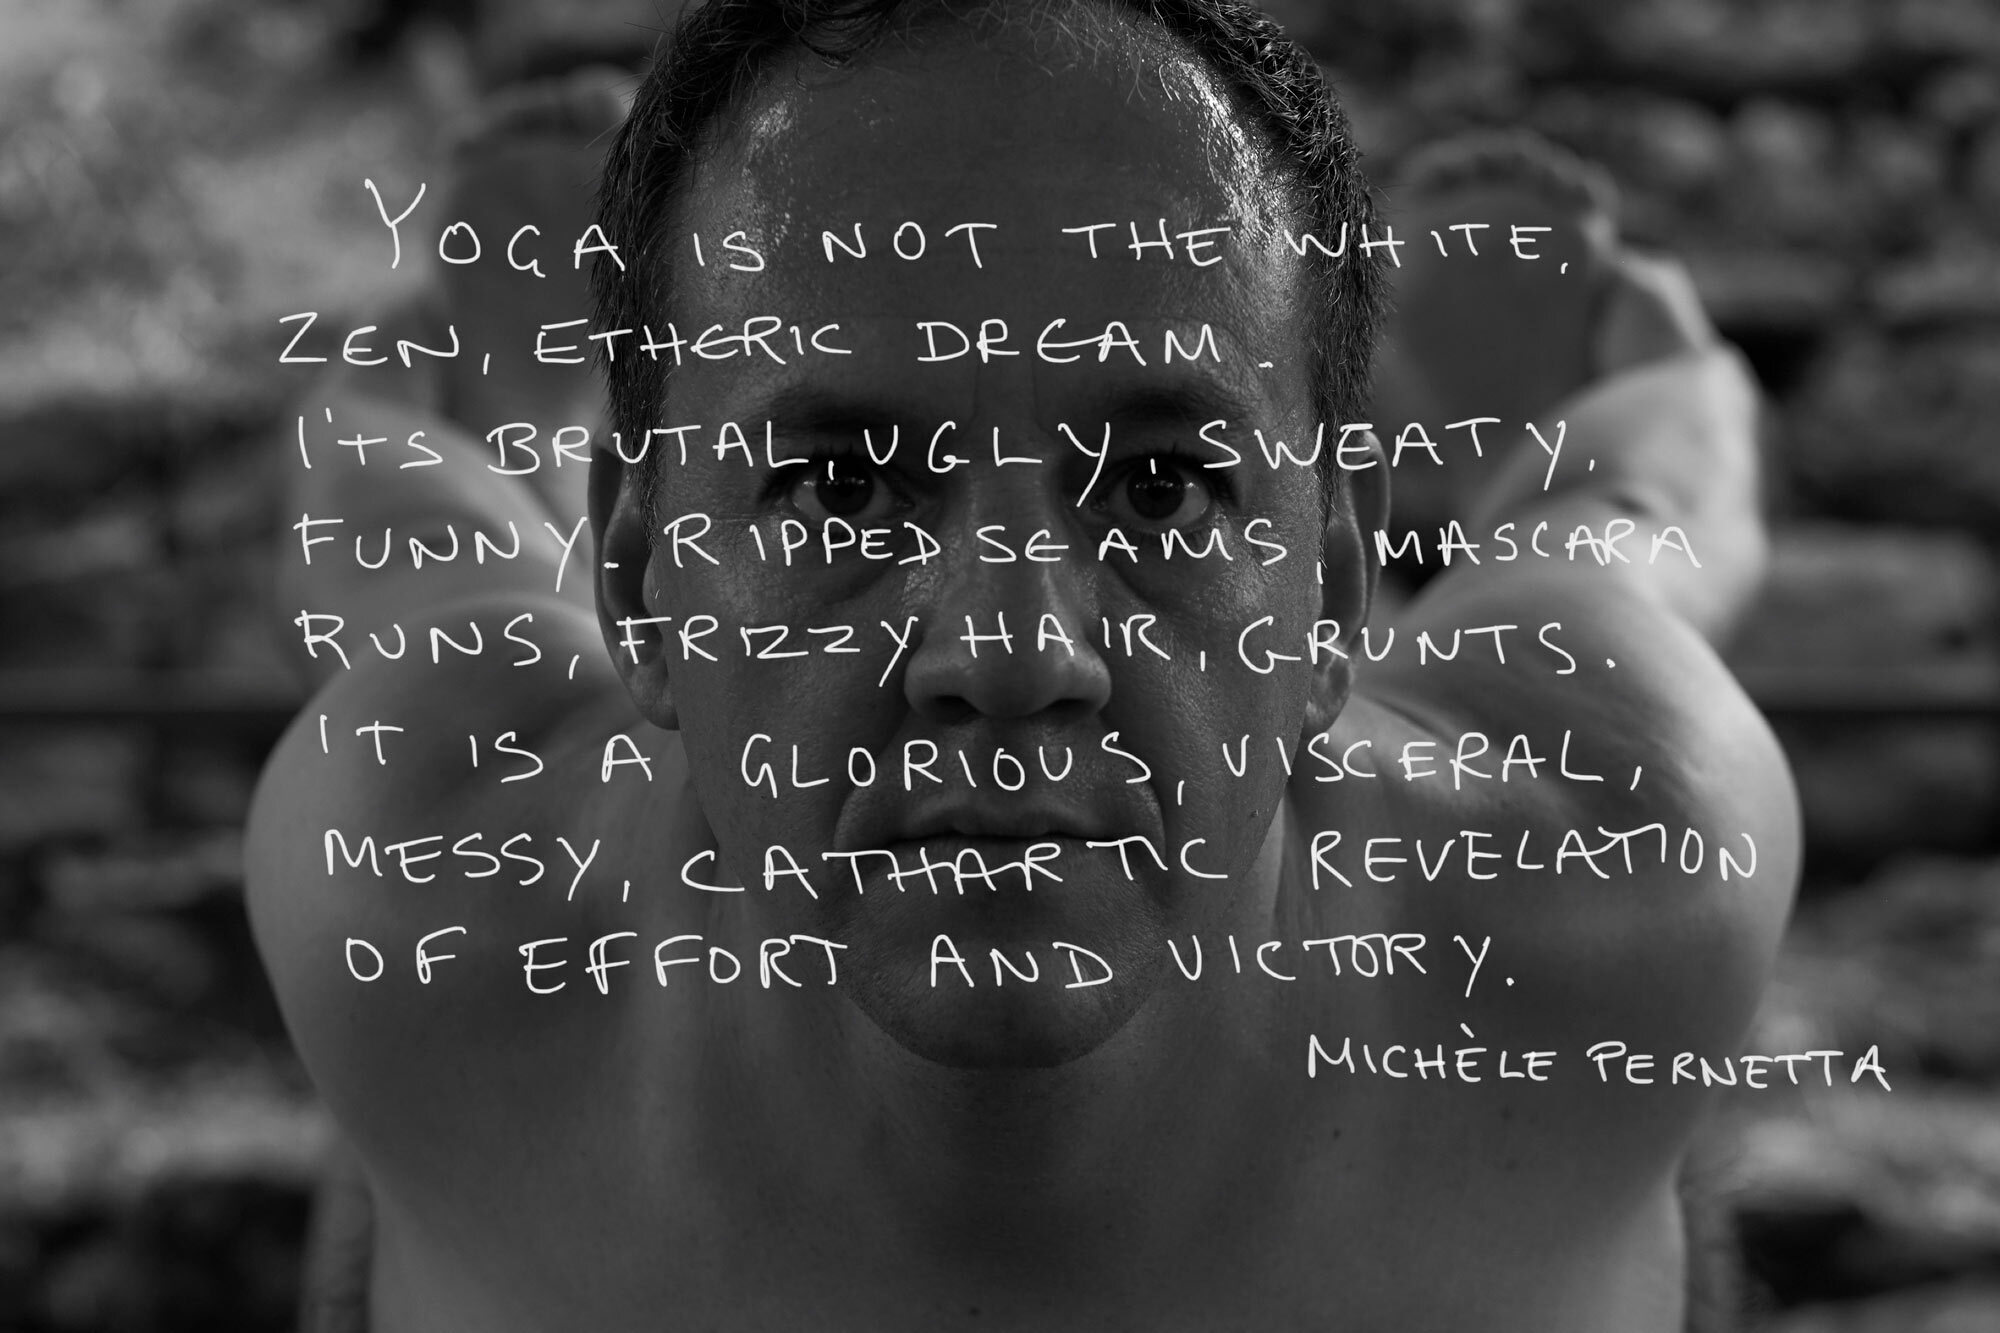 YOGA IS NOT THE WHITE,
ZEN, ETHERIC DREAM.
I'TS BRUTAL, UGLY, SWEATY,
FUNNY. RIPPED SEAMS, MASCARA
RUNS, FRIZZY HAIR, GRUNTS.
IT IS A GLORIOUS, VISCERAL,
MESSY, CATHARTIC REVELATION
OF EFFORT AND VICTORY.
MICHÈLE PERNETTA